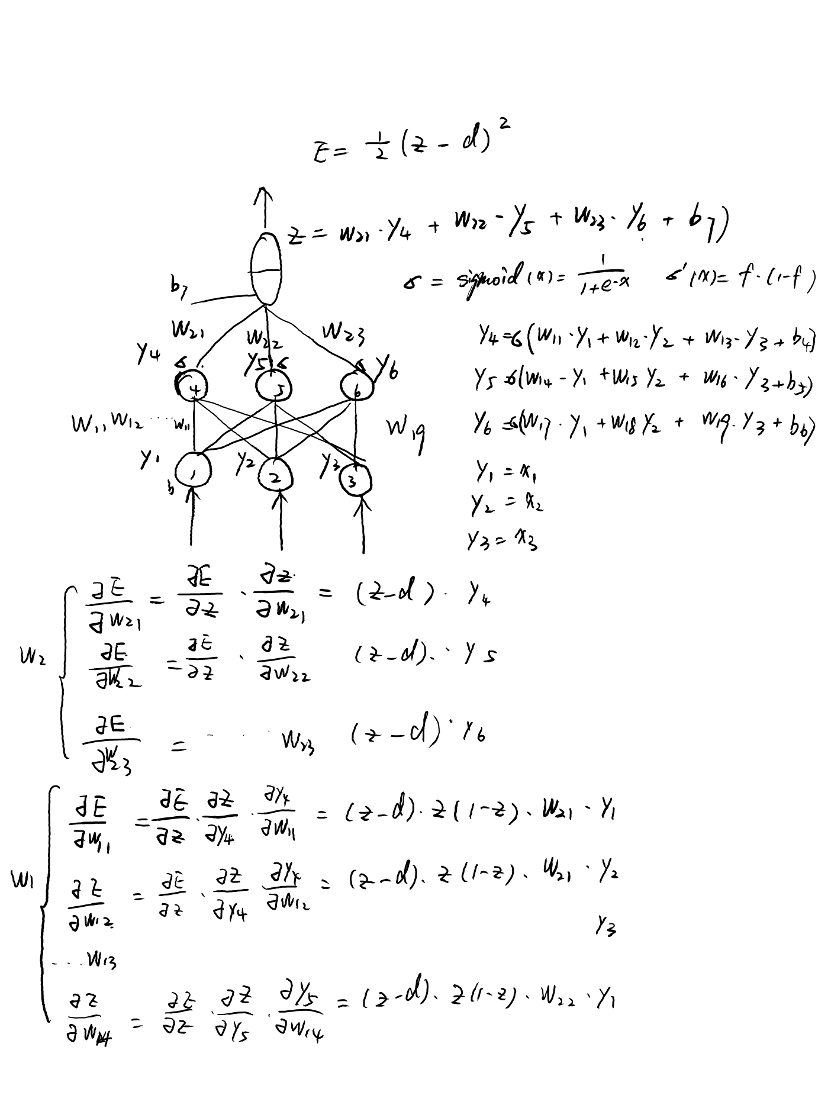 E = 1/2 (z - d)²
z = w21 · y4 + w22 - y5 + w23 · y6 + b7)
σ = sigmoid (x) = 1/(1+e-x) σ'(x) = f · (1-f)
b7
w21 w22 w23
y4 σ y5 σ σ y6
4 5 6
y4 = σ(w11 · y1 + w12 · y2 + w13 · y3 + b4)
y5 = σ(w14 - y1 + w15 y2 + w16 · y3 + b5)
w11 w12 ... w11 w19
y6 = σ(w17 · y1 + w18 y2 + w19 · y3 + b6)
y1 y2 y3
1 2 3
b
y1 = x1
y2 = x2
y3 = x3
w2
∂E/∂w21 = ∂E/∂z · ∂z/∂w21 = (z-d) · y4
∂E/∂w22 = ∂E/∂z · ∂z/∂w22 (z-d) · y5
∂E/∂w23 = ... w23 (z-d) · y6
w1
∂E/∂w11 = ∂E/∂z · ∂z/∂y4 · ∂y4/∂w11 = (z-d) · z(1-z) · w21 · y1
∂z/∂w12 = ∂E/∂z · ∂z/∂y4 · ∂y4/∂w12 = (z-d) · z(1-z) · w21 · y2
y3
... w13
∂z/∂w14 = ∂z/∂z · ∂z/∂y5 · ∂y5/∂w14 = (z-d) · z(1-z) · w22 · y1